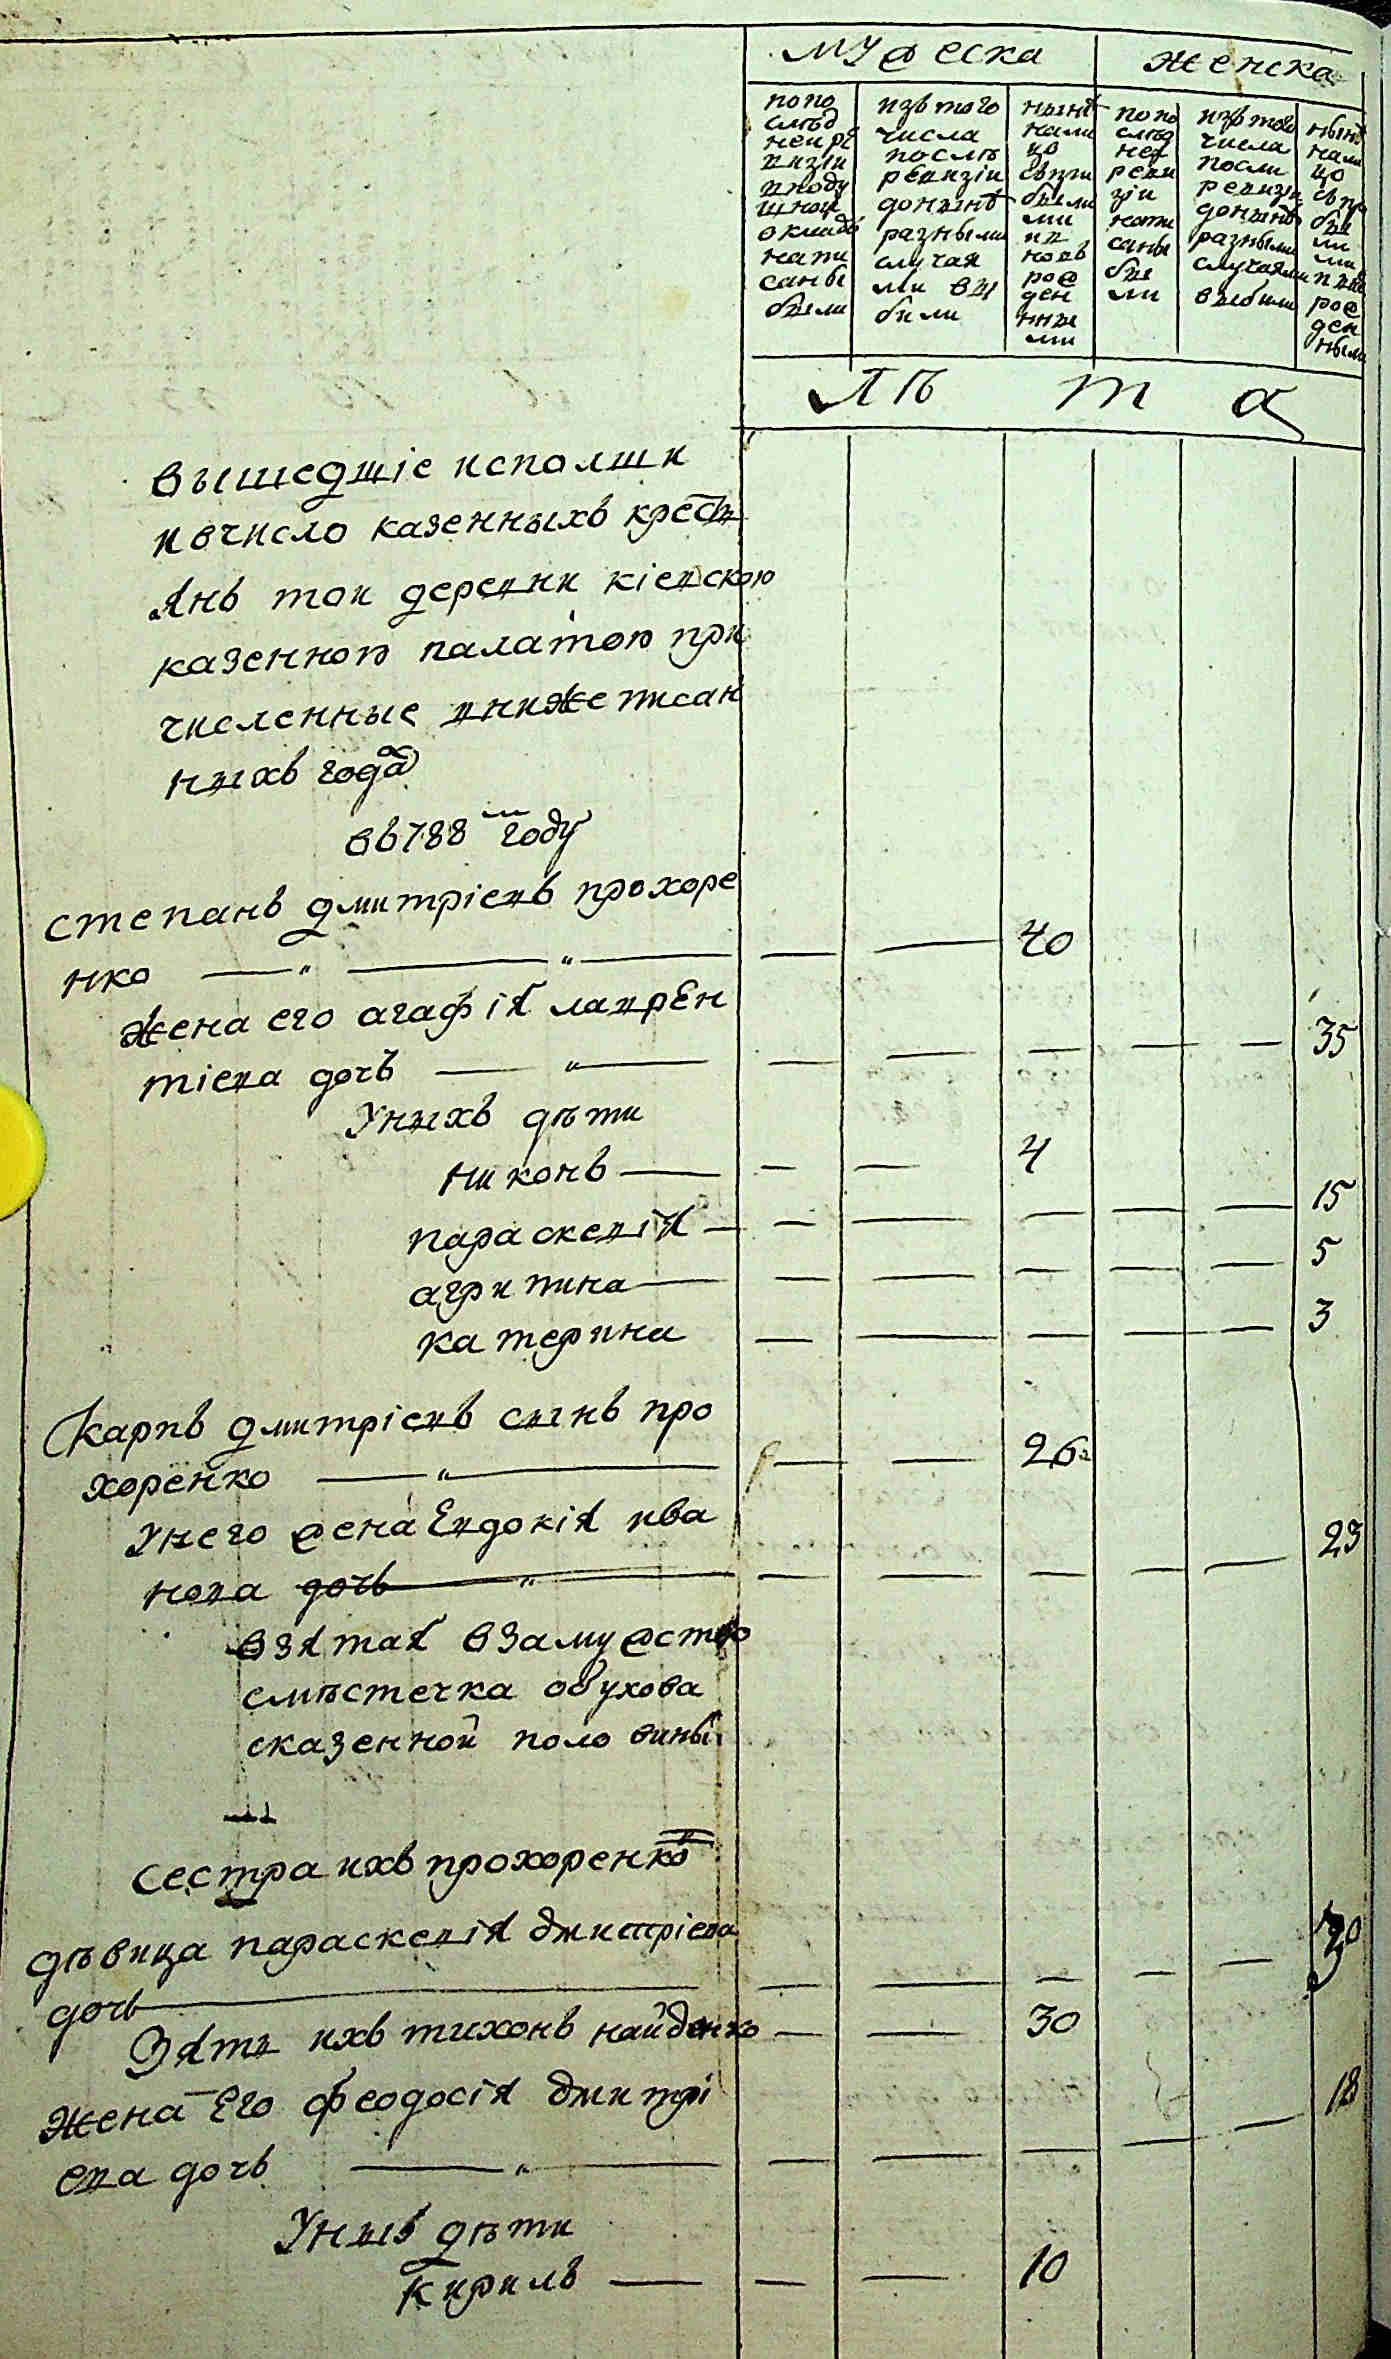 мужеска женска
попо
слѣд
ней рѣ
визіи
вподу
шной
окладъ
напи
саны
были
изъ того
числа
послѣ
ревизіи
донынѣ
разными
случая
ми вы
были
нынѣ
нали
цо
съпри
былы
ми
и в
новь
рож
ден
ны
ми
по по
слѣд
ней
реви
зіи
напи
саны
бы
ли
изъ того
числа
посли
ревизіи
донынѣ
разными
случаями
выбыли
нынѣ
нали
цо
съ при
бы
лы
ми
и вно
рож
ден
ными
лѣ т а
вышедшіе исполши
и вчисло казенныхъ кресть
янъ той деревни кіевскою
казенною палатою при
численные внижеписан
ныхъ года
въ 788 м году
степанъ дмитріевъ прохоре
нко — „ — „ — — — 40
жена его агафія лаврен
тіева дочь — „ — — — — — — 35
У ныхъ дѣти
никонъ — — — 4
параскевія — — — — — — 15
агрипина — — — — — — 5
катерина — — — — — 3
Карпъ дмитріевъ сынъ про
хоренко — „ — — — 26
У него жена Евдокія ива
нова дочь — „ — — — — — — 23
взятая взамужство
смѣстечка обухова
сказенной половины
сестра ихъ прохоренко
дѣвица параскевія дмитріева
дочь — — — — — — 30
Зять ихъ тихонъ найденко — — 30
жена Его феодосія дмитрі
ева дочь — „ — — — — — — 18
У ныхъ дѣти
Кирилъ — — — 10